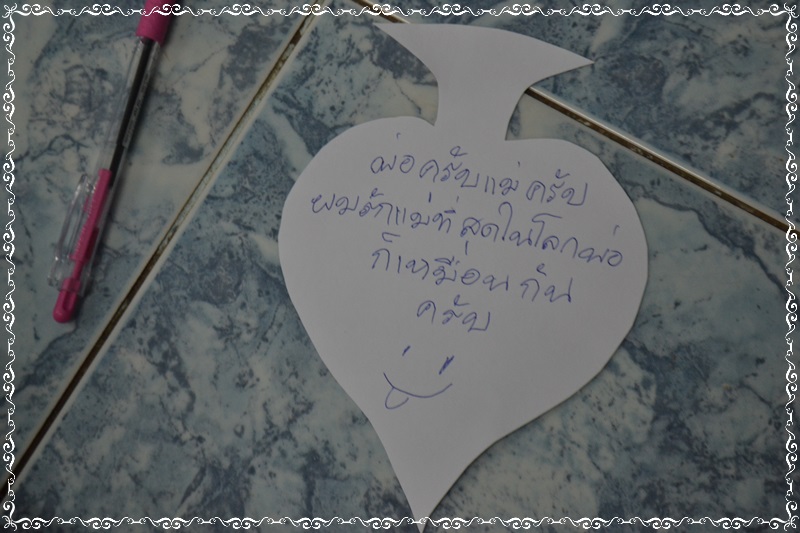 พ่อครับแม่ครับ
ผมรักแม่ที่สุดในโลกพ่อ
ก็เหมือนกัน
ครับ